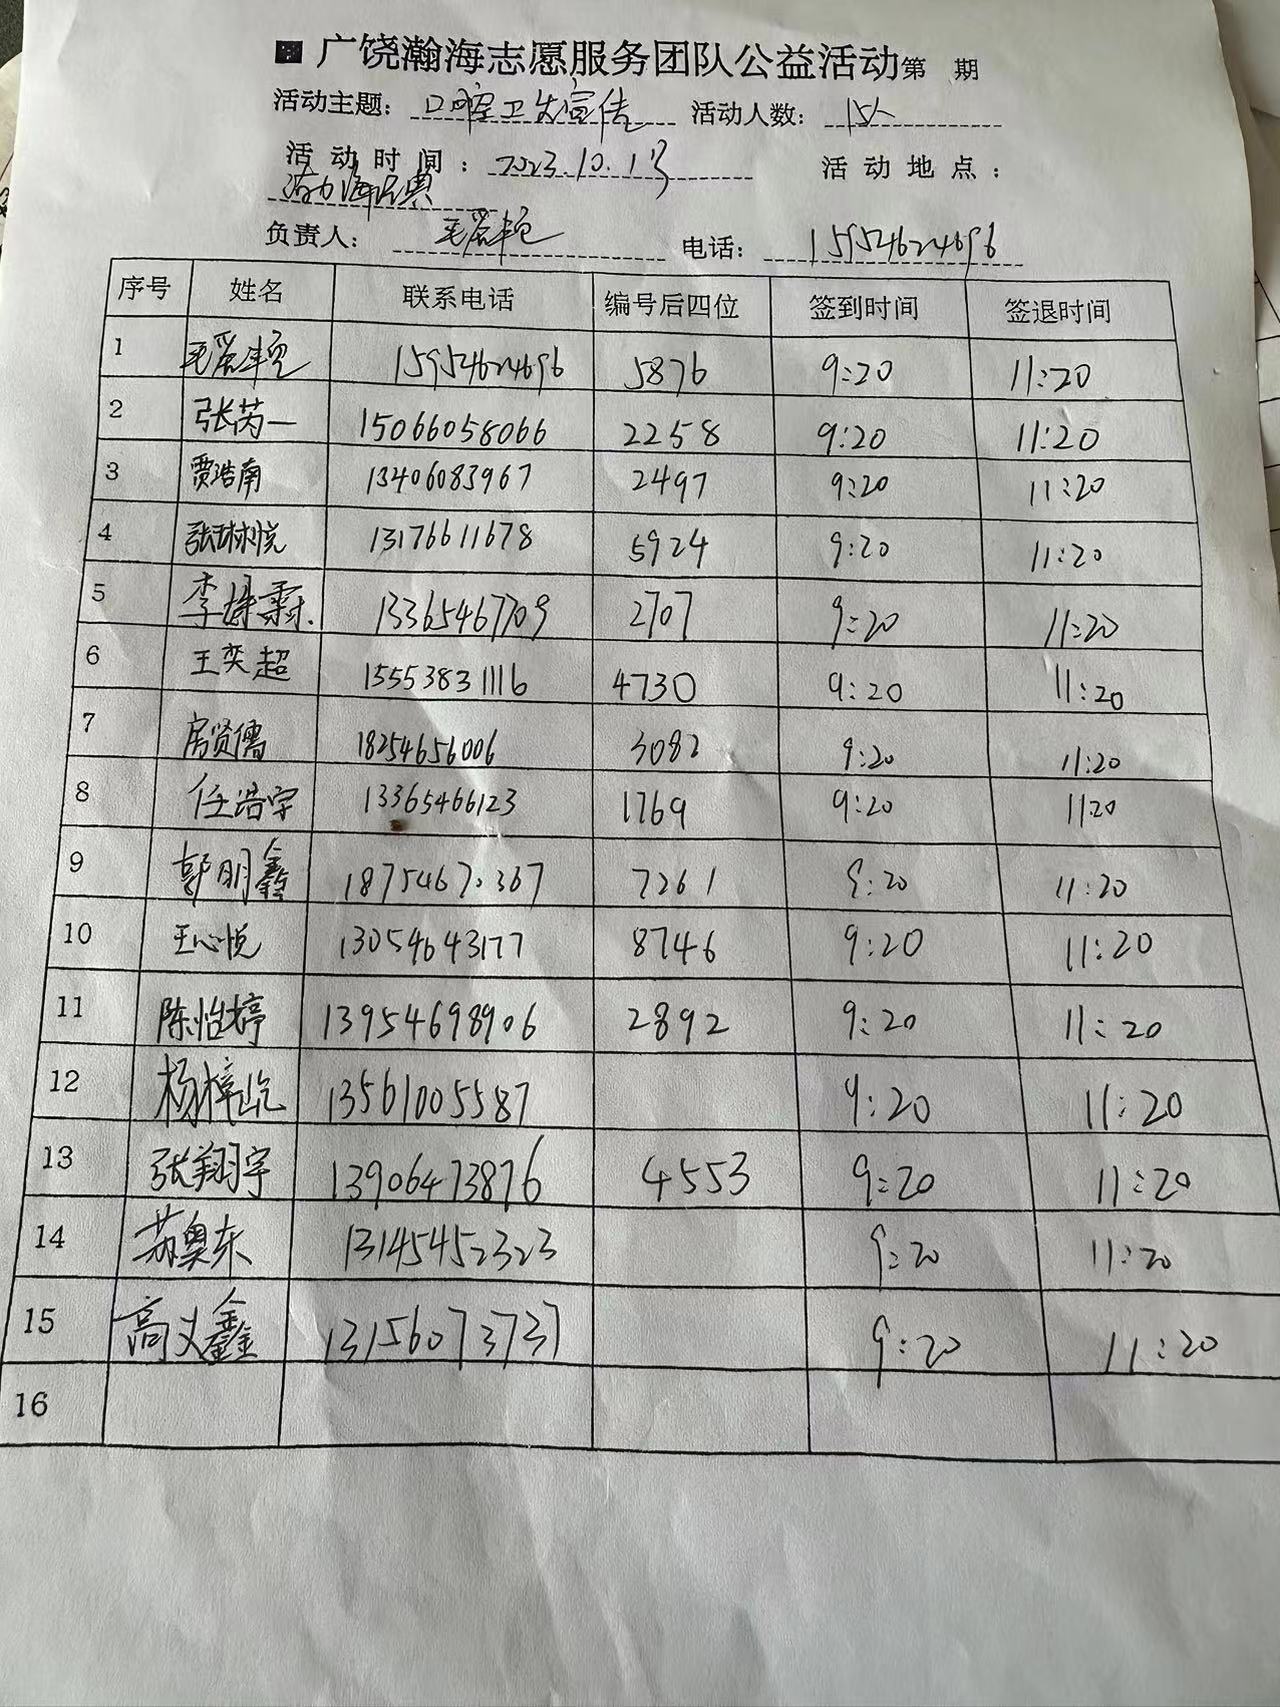 ■ 广饶瀚海志愿服务团队公益活动第 期
活动主题: 口腔卫生宣传 活动人数: 15人
活动时间: 2023.10.15 活动地点:
负责人: 毛 电话: 15954624696
序号 姓名 联系电话 编号后四位 签到时间 签退时间
1 毛 15954624696 5876 9:20 11:20
2 张芮一 15066058066 2258 9:20 11:20
3 贾浩南 13406083967 2497 9:20 11:20
4 张琳悦 13176611678 5924 9:20 11:20
5 李 霖. 13365467709 2707 9:20 11:20
6 王奕超 15553831116 4730 9:20 11:20
7 房贤儒 18254656006 3082 9:20 11:20
8 任浩宇 13365466123 1769 9:20 11:20
9 郭明鑫 7261 9:20 11:20
10 王心悦 13054643177 8746 9:20 11:20
11 陈怡婷 13954698906 2892 9:20 11:20
12 杨梓 13561005587 9:20 11:20
13 张翔宇 13906473876 4553 9:20 11:20
14 苏奥东 13145452323 9:20 11:20
15 高义鑫 13156073737 9:20 11:20
16